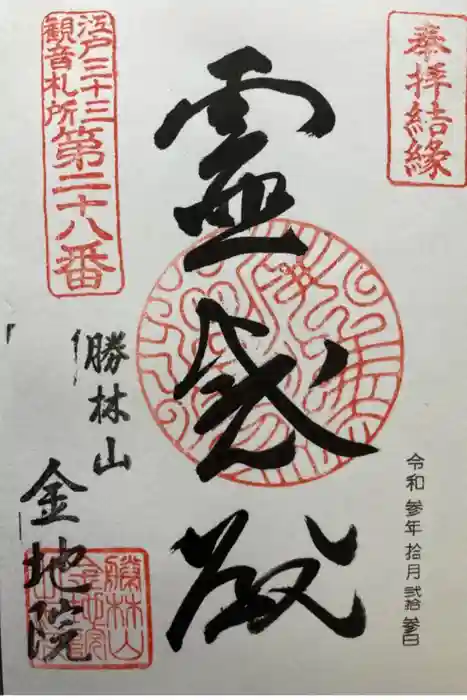 奉拝結縁
江戸三十三
観音札所
第二十八番
霊感殿
令和参年拾月弐拾参日
勝林山
金地院
勝林山
金地院